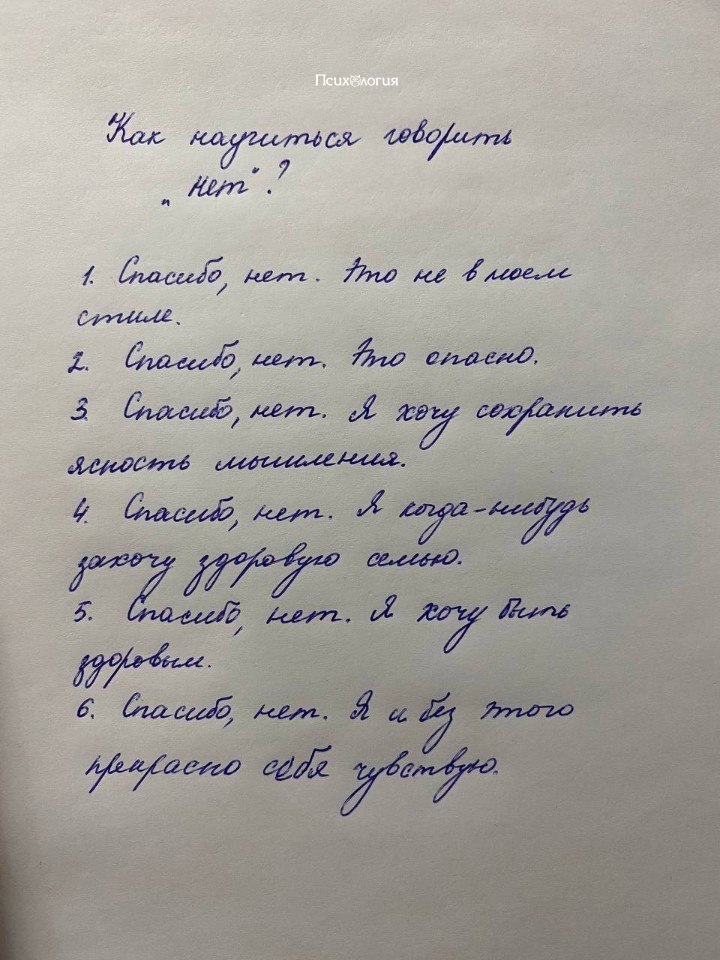 Психология
Как научиться говорить
„нет"?
1. Спасибо, нет. Это не в моем
стиле.
2. Спасибо, нет. Это опасно.
3. Спасибо, нет. Я хочу сохранить
ясность мышления.
4. Спасибо, нет. Я когда-нибудь
захочу здоровую семью.
5. Спасибо, нет. Я хочу быть
здоровым.
6. Спасибо, нет. Я и без этого
прекрасно себя чувствую.